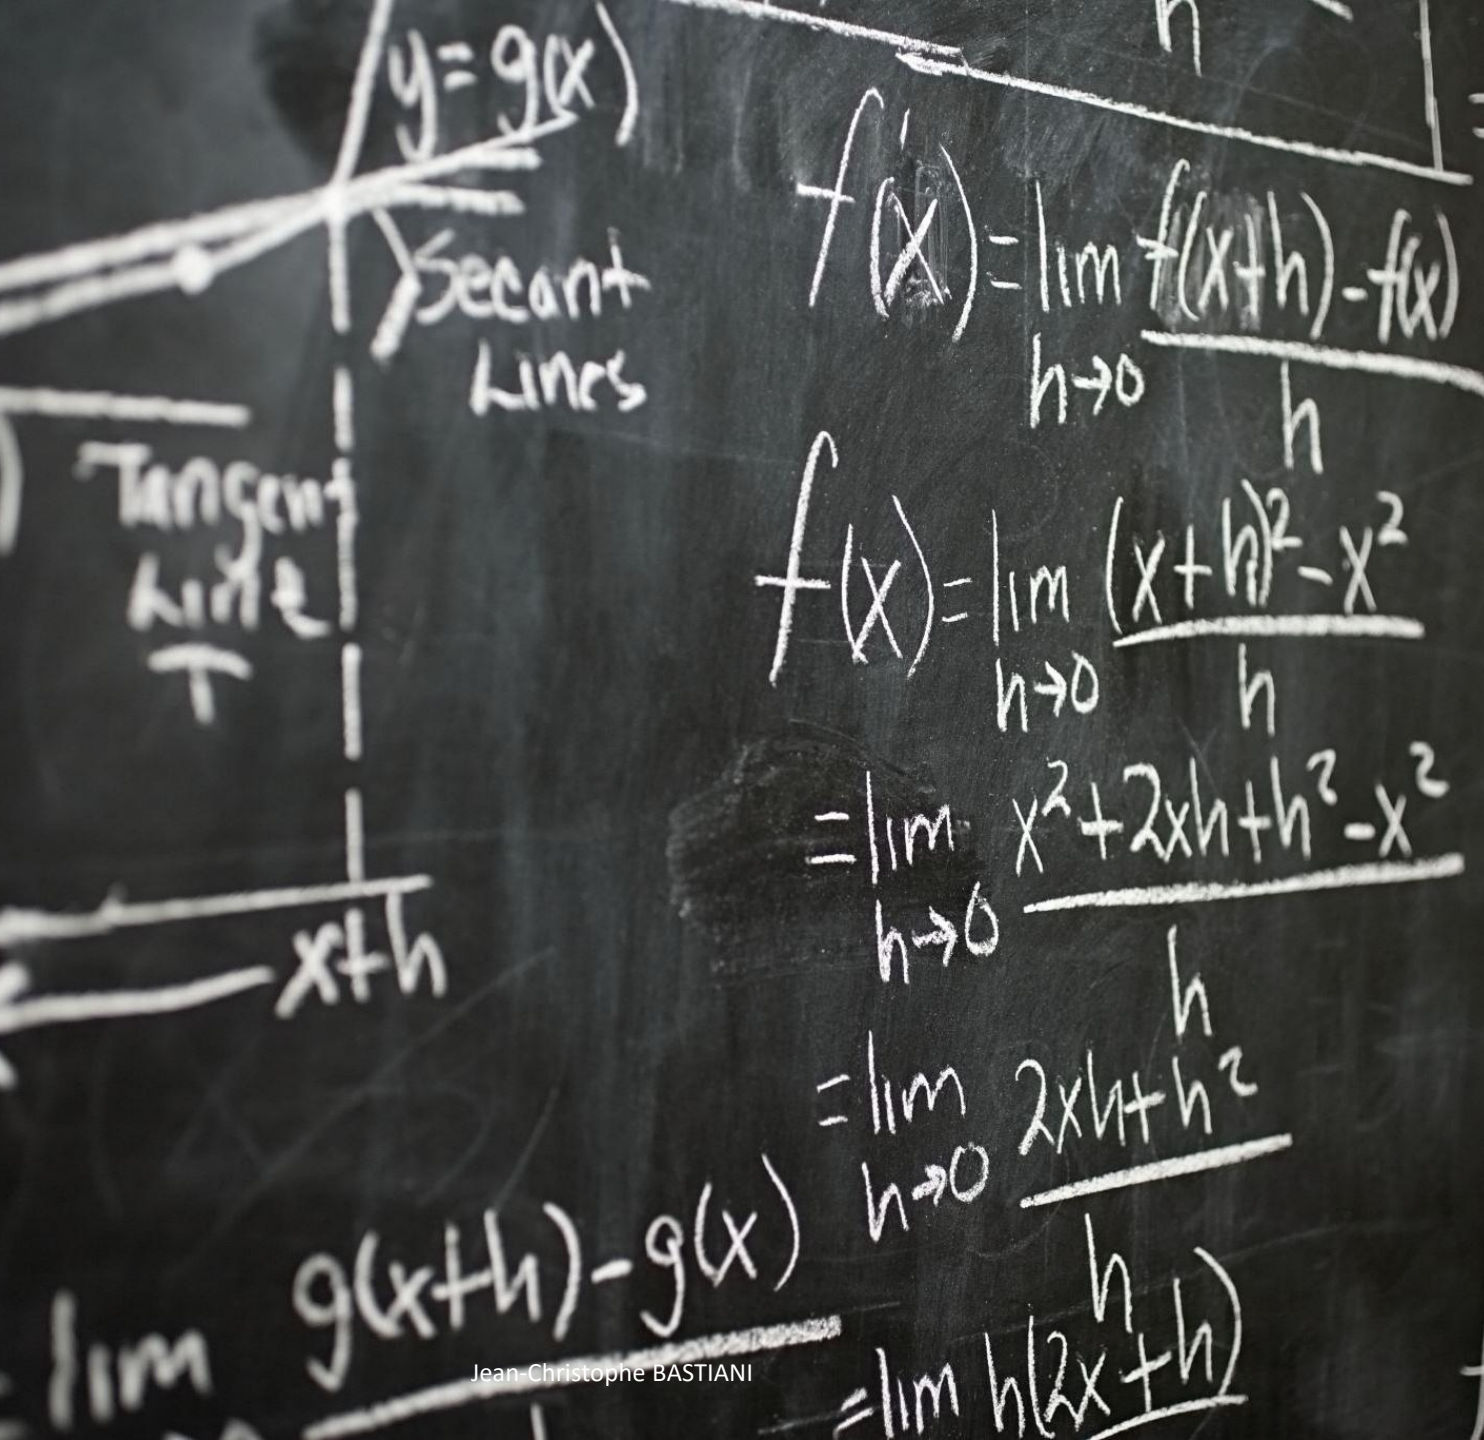 y=g(x)
Secant
Lines
Tangent
Line
T
x+h
lim g(x+h)-g(x)
h
f'(x)=lim f(x+h)-f(x)
h→0 h
f(x)=lim (x+h)²-x²
h→0 h
=lim x²+2xh+h²-x²
h→0 h
=lim 2xh+h²
h→0 h
=lim h(2x+h)
Jean-Christophe BASTIANI